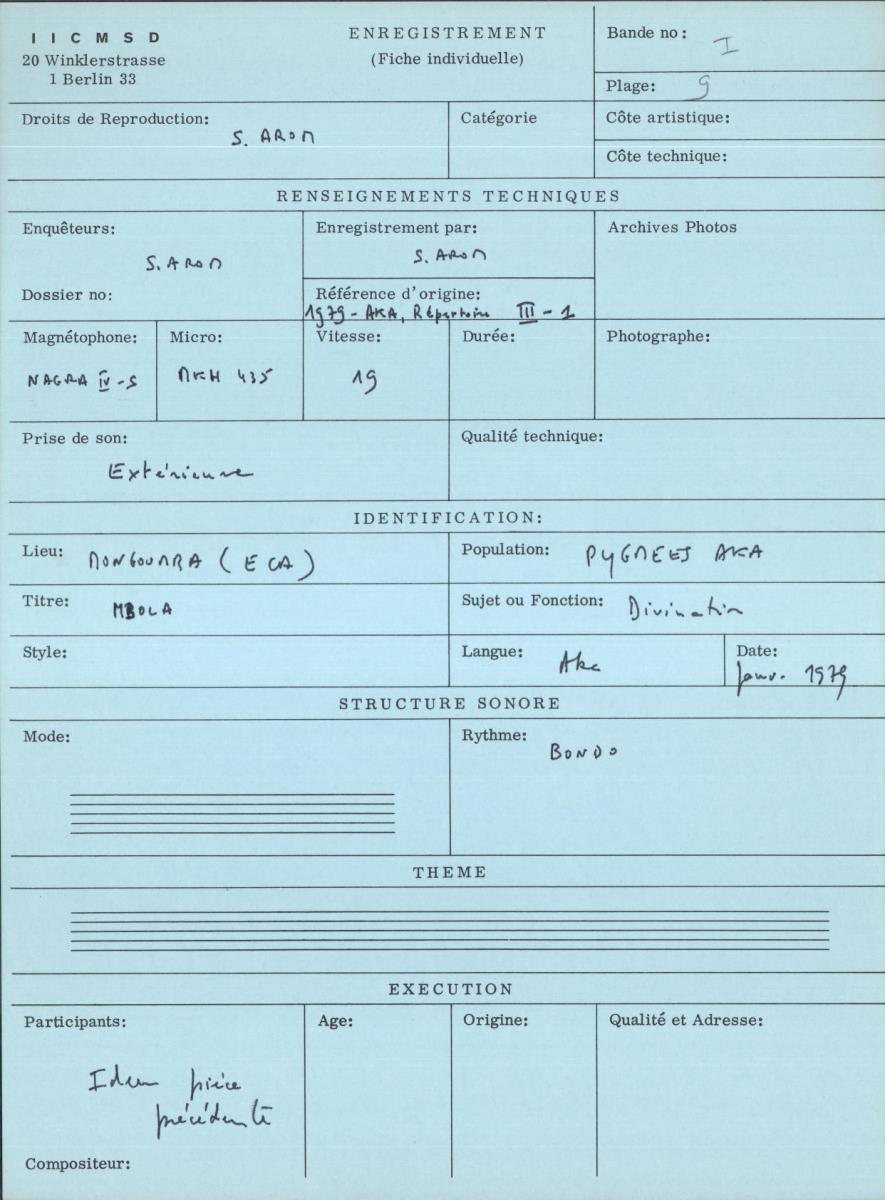 I I C M S D
20 Winklerstrasse
1 Berlin 33
ENREGISTREMENT
(Fiche individuelle)
Bande no: I
Plage: 9
Droits de Reproduction:
S. AROM
Catégorie
Côte artistique:
Côte technique:
RENSEIGNEMENTS TECHNIQUES
Enquêteurs:
S. AROM
Dossier no:
Enregistrement par:
S. AROM
Référence d'origine:
1979 - AKA, Répertoire III - 1
Archives Photos
Magnétophone:
NAGRA IV-S
Micro:
MKH 435
Vitesse:
19
Durée:
Photographe:
Prise de son:
Extérieure
Qualité technique:
IDENTIFICATION:
Lieu: MONGOUMBA (ECA)
Population: PYGMEES AKA
Titre: MBOLA
Sujet ou Fonction: Divination
Style:
Langue: Aka
Date:
Janv. 1979
STRUCTURE SONORE
Mode:
Rythme:
BONDO
THEME
EXECUTION
Participants:
Idem pièce
précédente
Age:
Origine:
Qualité et Adresse:
Compositeur: